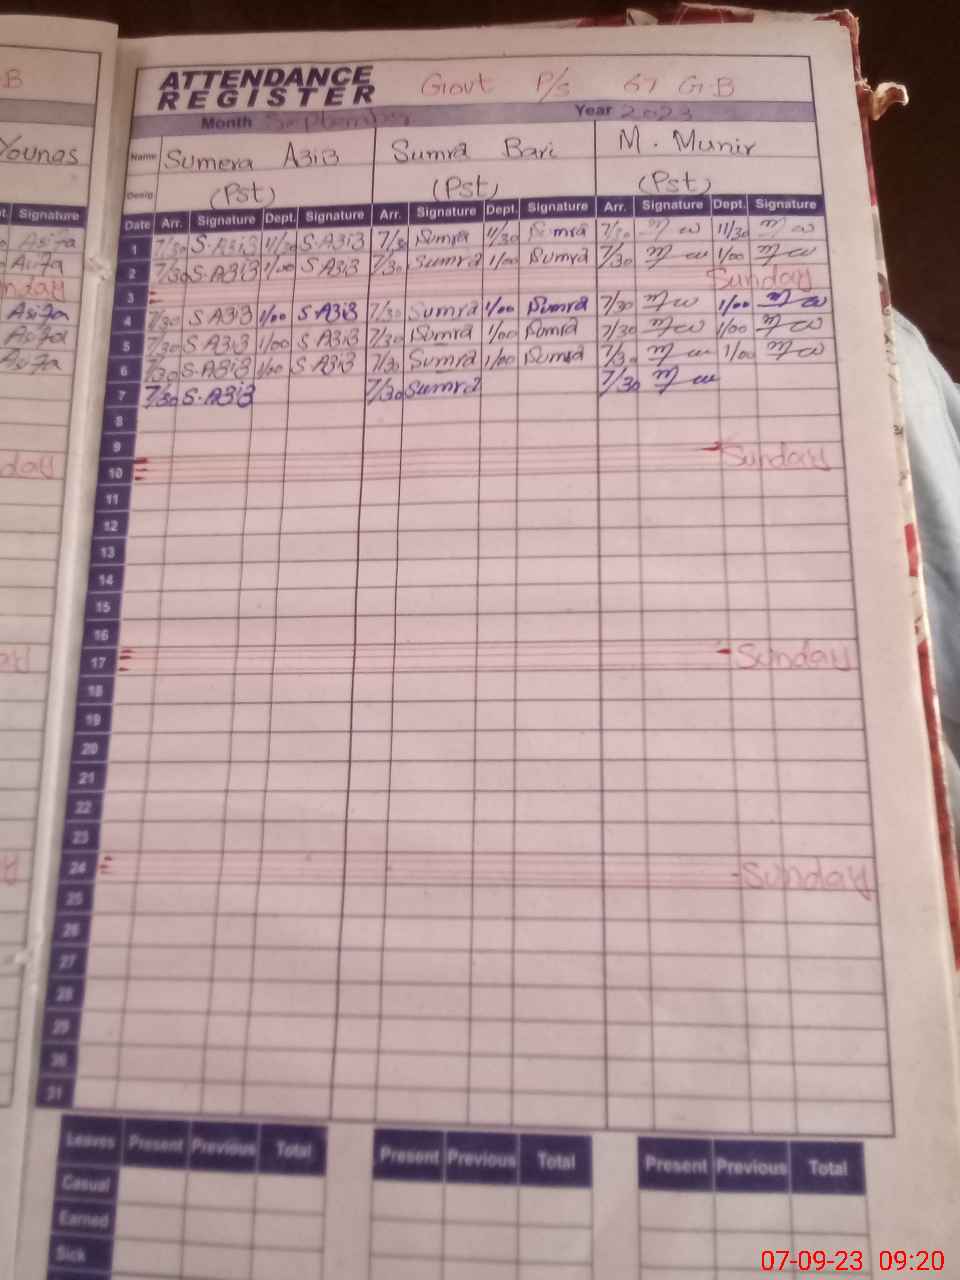 ATTENDANCE REGISTER Govt P/S 67 G.B
Month September Year 2023
Name Sumera A3i3 Sumra Bari M. Munir
Desig (Pst) (Pst) (Pst)
Date Arr. Signature Dept. Signature Arr. Signature Dept. Signature Arr. Signature Dept. Signature
1 7/30 S-A3i3 11/30 S-A3i3 7/30 Sumra 11/30 Sumra 7/30 11/30
2 7/30 S-A3i3 1/00 S A3i3 7/30 Sumra 1/00 Sumra 7/30 1/00
3 Sunday
4 7/30 S A3i3 1/00 S A3i3 7/30 Sumra 1/00 Sumra 7/30 1/00
5 7/30 S A3i3 1/00 S A3i3 7/30 Sumra 1/00 Sumra 7/30 1/00
6 7/30 S-A3i3 1/00 S A3i3 7/30 Sumra 1/00 Sumra 7/30 1/00
7 7/30 S-A3i3 7/30 Sumra 7/30
8
9
10 Sunday
11
12
13
14
15
16
17 Sunday
18
19
20
21
22
23
24 Sunday
25
26
27
28
29
30
31
Leaves Present Previous Total Present Previous Total Present Previous Total
Casual
Earned
Sick
B
Younas
Signature
Asifa
Asifa
nday
Asifa
Asifa
Asifa
day
07-09-23 09:20